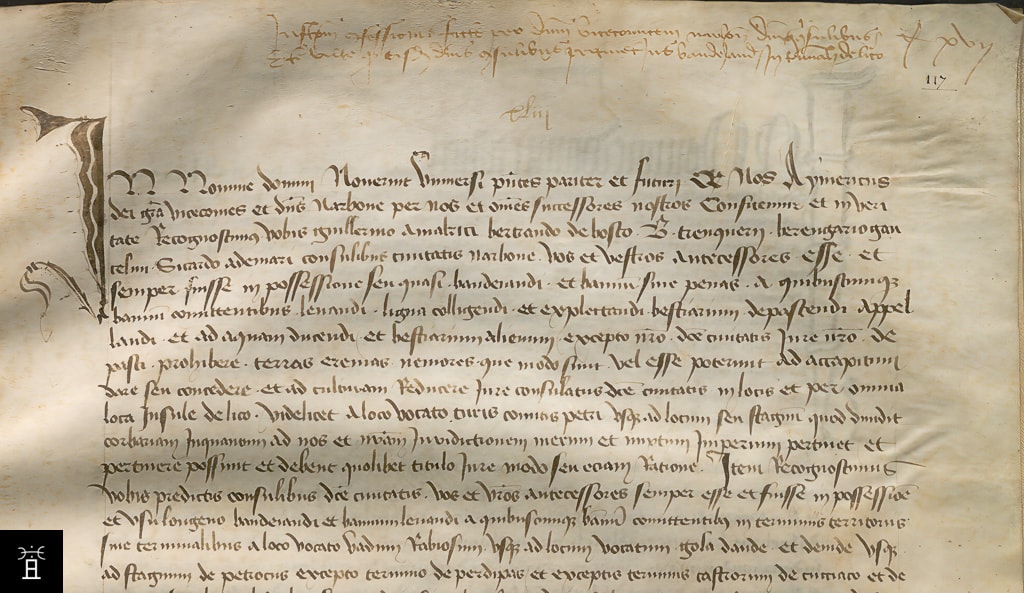 xvij
117
xliij
IN Nomine domini Noverint Universi pntes pariter et futuri Qd Nos Aymericus
dei gra vicecomes et dns Narbone per nos et omes successores nostros Confitemur et in veri
tate Recognoscimus vobis Guillermo amalrici bertrando de bosco . B . trenquerii . berengario gau
celini . Sicardo ademari consulibus civitatis narbone . vos et vestros antecessores esse . et
semper fuisse in possessione seu quasi . bandeiandi . et bannum sive penas . a quibuscumque
bannum comittentibus levandi . ligna colligendi . et explectandi . bestiarium depascendi . appel
landi . et ad aquam ducendi . et bestiarium alienum . excepto nro . dce civitatis Jure nro . de
pasti . prohibere . terras eremas nemores que modo sunt . vel esse poterunt ad accapitum
dare seu concedere . et ad culturam Reducere Jure consulatus dce civitatis in locis et per omnia
loca Insule de lico . videlicet a loco vocato turis comitis petri usque ad locum seu stagnum quod dividit
corbariam Inquantum ad nos et nram Jurisdictionem merum et mixtum Imperium pertinet et
pertinere possunt et debent quolibet titulo Jure modo seu eciam Ratione . Item Recognoscimus
vobis predictis consulibus dce civitatis . vos et vros antecessores semper esse et fuisse in possessione
et usu longevo bandeiandi et bannum levandi a quibuscumque bannum comittentibus in terminis territoriis
sive terminalibus a loco vocato vadum Rabiosum usque ad locum vocatum . gola daude . et deinde usque
ad stagnum de petrocus excepto termino de perdipas et exceptis terminis castrorum de cuciaco et de